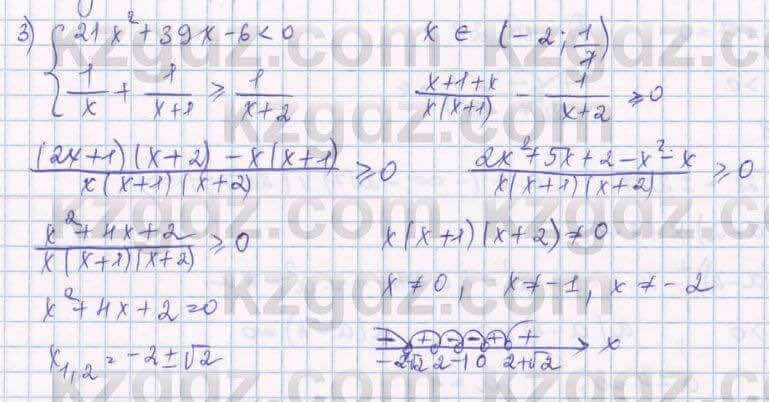 3) { 21x² + 39x - 6 < 0    x ∈ (-2; 1/7)
1/x + 1/(x+1) ≥ 1/(x+2)    (x+1+x)/(x(x+1)) - 1/(x+2) ≥ 0
((2x+1)(x+2) - x(x+1))/(x(x+1)(x+2)) ≥ 0    (2x² + 5x + 2 - x² - x)/(x(x+1)(x+2)) ≥ 0
(x² + 4x + 2)/(x(x+1)(x+2)) ≥ 0    x(x+1)(x+2) ≠ 0
x² + 4x + 2 = 0    x ≠ 0, x ≠ -1, x ≠ -2
x₁,₂ = -2 ± √2    - + - - + +    x
-2√2 2 -1 0 2+√2
kzgdz.com